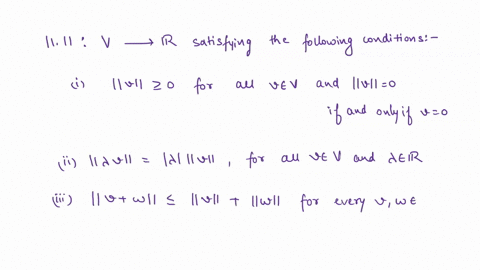 ||.|| : V ⟶ ℝ satisfying the following conditions:-
(i) ||v|| ≥ 0 for all v∈V and ||v||=0
if and only if v=0
(ii) ||λv|| = |λ| ||v|| , for all v∈V and λ∈ℝ
(iii) ||v+w|| ≤ ||v|| + ||w|| for every v,w∈